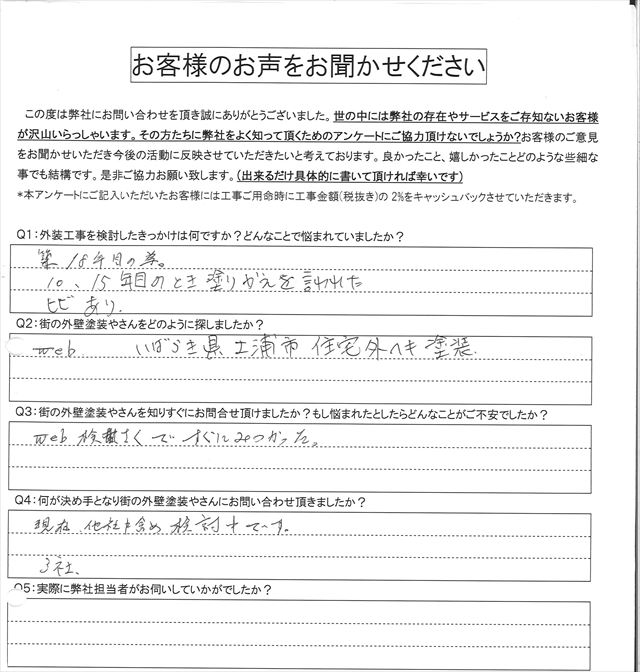 お客様のお声をお聞かせください
この度は弊社にお問い合わせを頂き誠にありがとうございました。世の中には弊社の存在やサービスをご存知ないお客様
が沢山いらっしゃいます。その方たちに弊社をよく知って頂くためのアンケートにご協力頂けないでしょうか?お客様のご意見
をお聞かせいただき今後の活動に反映させていただきたいと考えております。良かったこと、嬉しかったことどのような些細な
事でも結構です。是非ご協力お願い致します。(出来るだけ具体的に書いて頂ければ幸いです)
*本アンケートにご記入いただいたお客様には工事ご用命時に工事金額(税抜き)の2%をキャッシュバックさせていただきます。
Q1:外装工事を検討したきっかけは何ですか?どんなことで悩まれていましたか?
築18年目の
10、15年目のとき塗りかえを言われた
ヒビあり.
Q2:街の外壁塗装やさんをどのように探しましたか?
web いばらき県土浦市 住宅外ヘキ塗装.
Q3:街の外壁塗装やさんを知りすぐにお問合せ頂けましたか?もし悩まれたとしたらどんなことがご不安でしたか?
web 検さくですぐにみつかった。
Q4:何が決め手となり街の外壁塗装やさんにお問い合わせ頂きましたか?
現在、他社も含め検討中です。
3社、
Q5:実際に弊社担当者がお伺いしていかがでしたか?